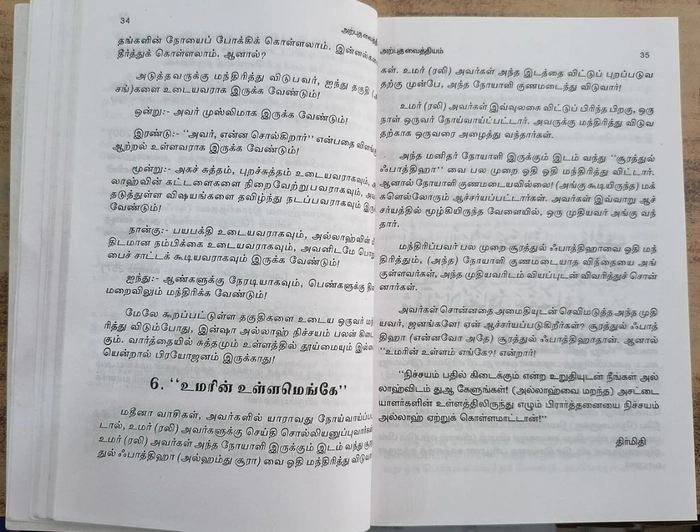 34
அற்புத வைத்தி
தங்களின் நோயைப் போக்கிக் கொள்ளலாம். இன்னல்களை
தீர்த்துக் கொள்ளலாம். ஆனால்?
அடுத்தவருக்கு மந்திரித்து விடுபவர், ஐந்து தகுதி
சங்)களை உடையவராக இருக்க வேண்டும்!
ஒன்று:- அவர் முஸ்லிமாக இருக்க வேண்டும்!
இரண்டு:- “அவர், என்ன சொல்கிறார்” என்பதை
ஆற்றல் உள்ளவராக இருக்க வேண்டும்!
மூன்று:- அகச் சுத்தம், புறச்சுத்தம் உடையவராகவும்,
லாஹ்வின் கட்டளைகளை நிறைவேற்றுபவராகவும்,
தடுத்துள்ள விஷயங்களை தவிழ்ந்து நடப்பவராகவும்
வேண்டும்!
நான்கு:- பயபக்தி உடையவராகவும், அல்லாஹ்வின்
திடமான நம்பிக்கை உடையவராகவும், அவனிடமே
பைச் சாட்டக் கூடியவராகவும் இருக்க வேண்டும்!
ஐந்து:- ஆண்களுக்கு நேரடியாகவும், பெண்களுக்கு
மறைவிலும் மந்திரிக்க வேண்டும்!
மேலே கூறப்பட்டுள்ள தகுதிகளை உடைய ஒருவர்
ரித்து விடும்போது, இன்ஷா அல்லாஹ் நிச்சயம் பலன்
கும். வார்த்தையில் சுத்தமும் உள்ளத்தில் தூய்மையும்
யென்றால் பிரயோஜனம் இருக்காது!
6. “உமரின் உள்ளமெங்கே”
மதீனா வாசிகள், அவர்களில் யாராவது நோய்வாய்ப்பட்
டால், உமர் (ரலி) அவர்களுக்கு செய்தி சொல்லியனுப்புவார்கள்
உமர் (ரலி) அவர்கள் அந்த நோயாளி இருக்கும் இடம் வந்து
துல் ஃபாத்திஹா (அல்ஹம்து சூரா) வை ஓதி மந்திரித்து
அற்புத வைத்தியம்
35
கள். உமர் (ரலி) அவர்கள் அந்த இடத்தை விட்டுப் புறப்படுவ
தற்கு முன்பே, அந்த நோயாளி குணமடைந்து விடுவார்!
உமர் (ரலி) அவர்கள் இவ்வுலகை விட்டுப் பிரிந்த பிறகு, ஒரு
நாள் ஒருவர் நோய்வாய்ப்பட்டார். அவருக்கு மந்திரித்து விடுவ
தற்காக ஒருவரை அழைத்து வந்தார்கள்.
அந்த மனிதர் நோயாளி இருக்கும் இடம் வந்து “சூரத்துல்
ஃபாத்திஹா” வை பல முறை ஓதி ஓதி மந்திரித்து விட்டார்.
ஆனால் நோயாளி குணமடையவில்லை! (அங்கு கூடியிருந்த) மக்
களெல்லோரும் ஆச்சர்யப்பட்டார்கள். அவர்கள் இவ்வாறு ஆச்
சர்யத்தில் மூழ்கியிருந்த வேளையில், ஒரு முதியவர் அங்கு வந்
தார்.
மந்திரிப்பவர் பல முறை சூரத்துல் ஃபாத்திஹாவை ஓதி மந்
திரித்தும், (அந்த) நோயாளி குணமடையாத விந்தையை அங்
குள்ளவர்கள், அந்த முதியவரிடம் வியப்புடன் விவரித்துச் சொன்
னார்கள்.
அவர்கள் சொன்னதை அமைதியுடன் செவிமடுத்த அந்த முதி
யவர், ஜனங்களே! ஏன் ஆச்சர்யப்படுகிறீர்கள்? சூரத்துல் ஃபாத்
திஹா (என்னவோ அதே) சூரத்துல் ஃபாத்திஹாதான். ஆனால்
“உமரின் உள்ளம் எங்கே?! என்றார்!
“நிச்சயம் பதில் கிடைக்கும் என்ற உறுதியுடன் நீங்கள் அல்
லாஹ்விடம் துஆ கேளுங்கள்! (அல்லாஹ்வை மறந்த) அசட்டை
யாளர்களின் உள்ளத்திலிருந்து எழும் பிரார்த்தனையை நிச்சயம்
அல்லாஹ் ஏற்றுக் கொள்ளமாட்டான்!”
திர்மிதி